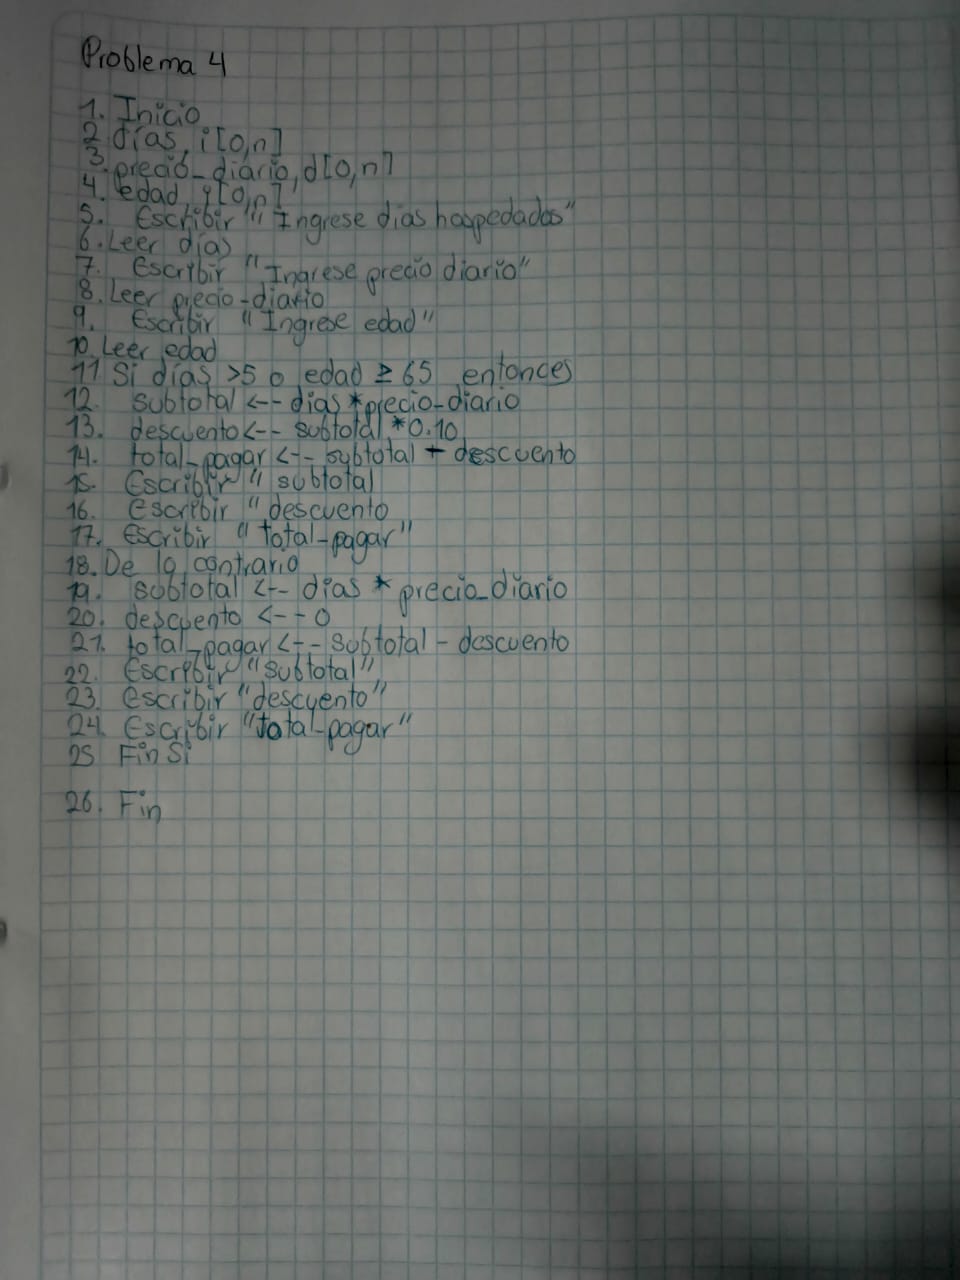 Problema 4
1. Inicio
2 días, i[0,n]
3. precio_diario, d[0,n]
4. edad, i[0,n]
5. Escribir "Ingrese dias hospedados"
6. Leer días
7. Escribir "Ingrese precio diario"
8. Leer precio-diario
9. Escribir "Ingrese edad"
10. Leer edad
11 Si días >5 o edad ≥ 65 entonces
12. subtotal <-- dias *precio-diario
13. descuento <-- subtotal *0.10
14. total-pagar <-- subtotal - descuento
15. Escribir " subtotal
16. escribir "descuento
17. escribir "total-pagar"
18. De lo contrario
19. subtotal <-- días * precio_diario
20. descuento <-- 0
21. total-pagar <-- subtotal - descuento
22. Escribir "subtotal"
23. escribir "descuento"
24. Escribir "total-pagar"
25 Fin Si
26. Fin